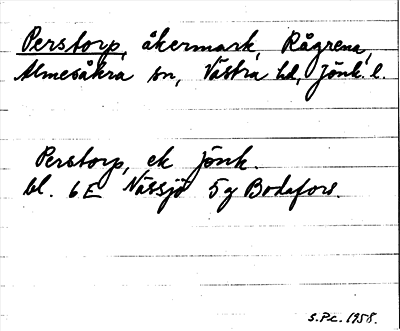 Perstorp, åkermark, Rågrena,
Almesåkra sn, Västra hd, Jönk. l.
Perstorp, ek jönk.
bl. 6E Nässjö 5g Bodafors.
S.P.c. 1958.